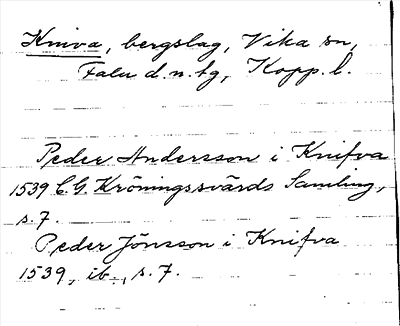 Kniva, bergslag, Vika sn,
Falu d.n.tg, Kopp. l.
Peder Andersson i Knifva
1539 C.G. Kröningssvärds Samling,
s. 7.
Peder Jönsson i Knifva
1539, ib., s. 7.